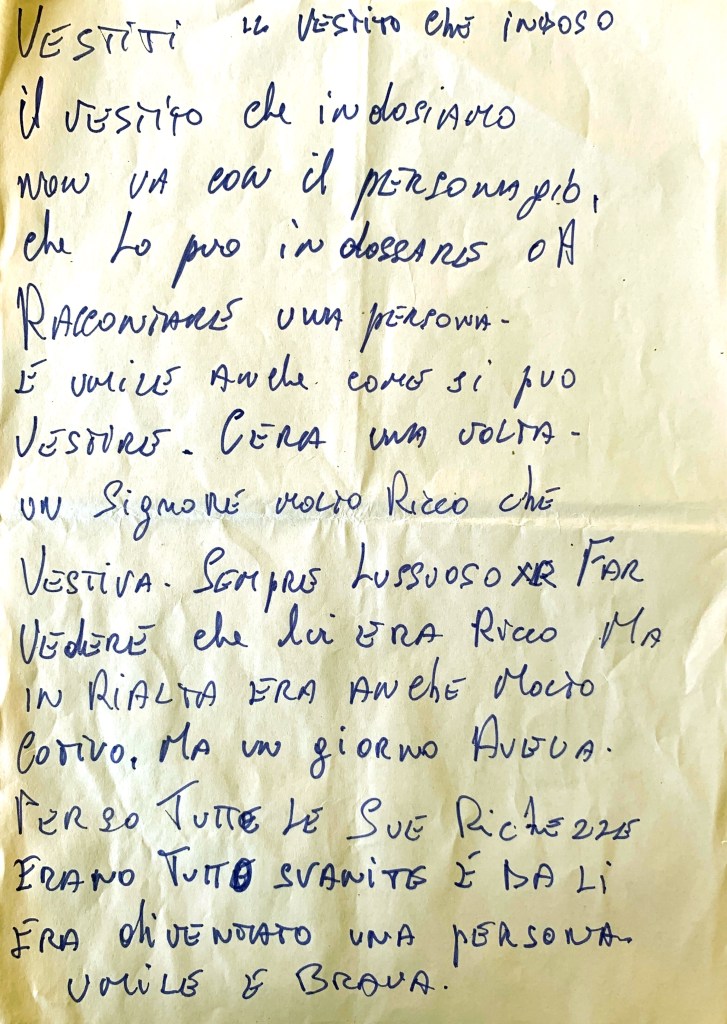 VESTITI IL VESTITO che INDOSO
il VESTITO che indosiAMO
NON VA CON il PERSONAgio,
che Lo puo indossARE o A
RACCONTARE UNA pERSONA-
E UMILE ANche COME si puo
VESTIRE. CERA UNA VOLTA-
UN SigNORE MOLTO Ricco chE
VESTIVA. SEMPRE LUSSUOSO XR FAR
VEdERE che lui ERA Ricco MA
IN RiALTA ERA ANChE MOLTO
COTIVO, MA UN giORNO AVEVA.
PERSO TUTTE LE SUE RicHEZZE
ERANO TUTTO SVANITE E DA Li
ERA diVENTATO UNA pERSONA.
UMILE E BRAVA.